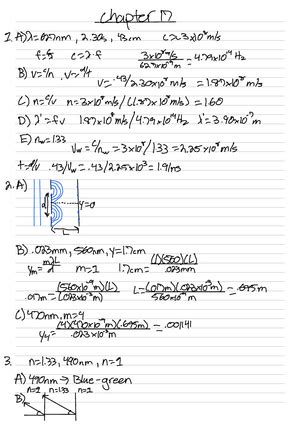 Chapter 17
1. A) λ=627nm, 2.30s, 43cm c=3×10⁸m/s
f=c/λ c=λ·f 3×10⁸m/s / 627×10⁻⁹m = 4.79×10¹⁴Hz
B) v=c/n, v=d/t v=.43/2.30×10⁻⁹m/s = 1.87×10⁸ m/s
C) n=c/v n=3×10⁸m/s/(1.87×10⁸ m/s) = 1.60
D) λ'=f v 1.87×10⁸m/s/4.79×10¹⁴Hz λ'=3.90×10⁻⁷m
E) nw=1.33 Vw=c/nw=3×10⁸/1.33=2.25×10⁸m/s
t=d/v .43/Vw=.43/2.25×10⁸=1.91ns
2. A)
d y=0
L
B) .023mm, 560nm, y=1.7cm
ym=mλL/d m=1 1.7cm=(1)(560)(L)/.023mm
.017m=(560×10⁻⁹m)(L)/(.023×10⁻³m) L=(.017m)(.023×10⁻³m)/560×10⁻⁹m=.695m
C) 470nm, m=4
y4=(4)(470×10⁻⁹m)(.695m)/.023×10⁻³m
3. n=1.33, 490nm, n=1
A) 490nm → Blue-green
B) n=1 n=1.33 n=1